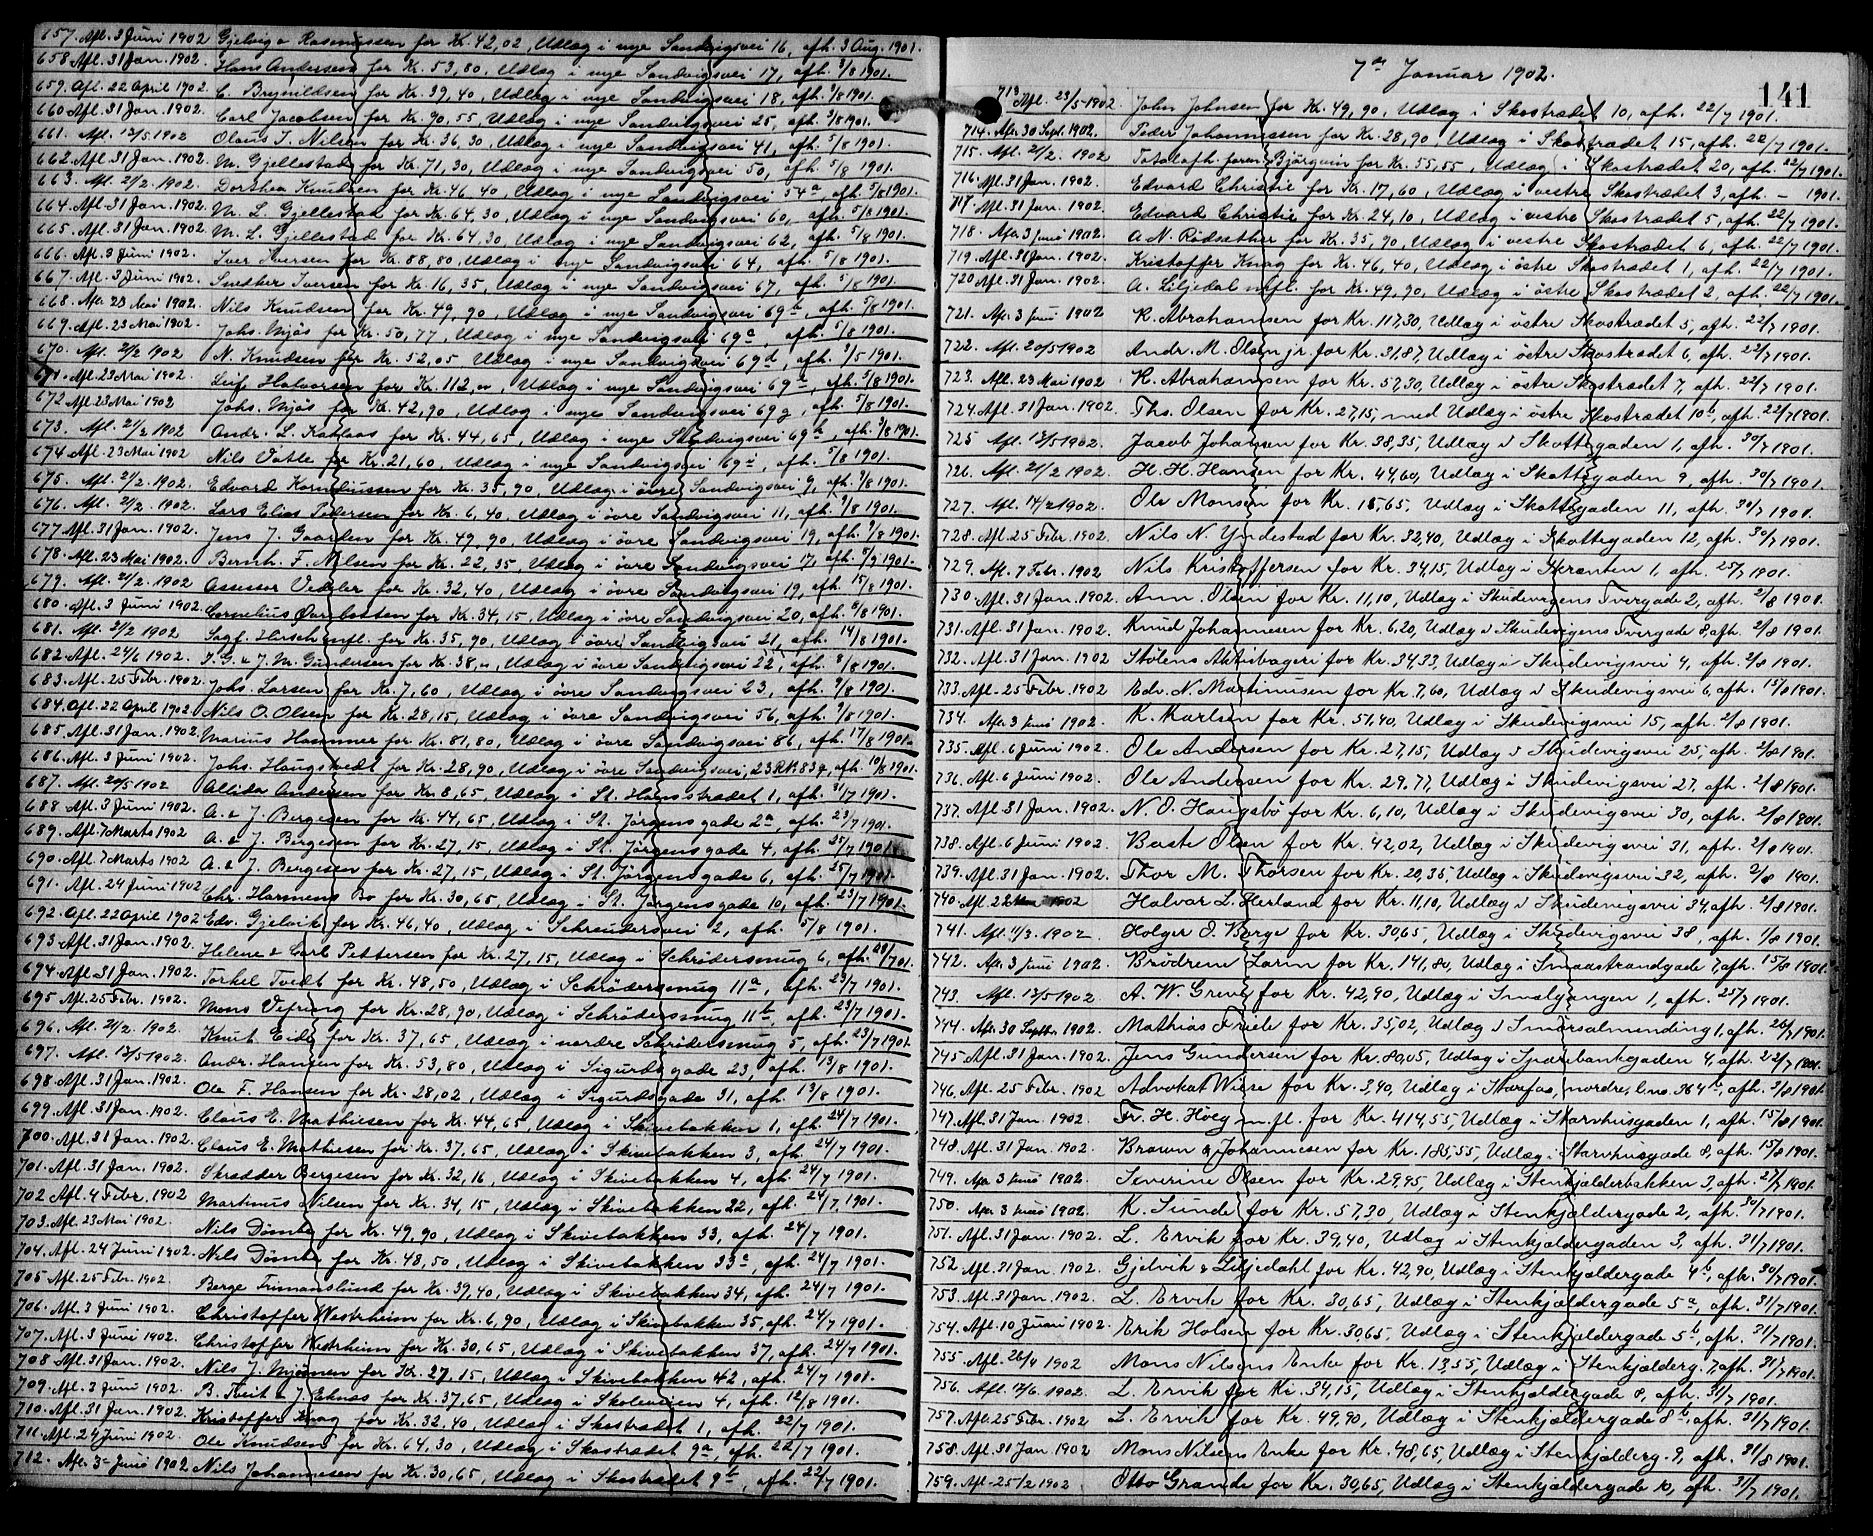 657. Afl. 3 Juni 1902 Gjelvig & Rasmussen for Kr. 42,02, Udlæg i nye Sandvigsvei 16, afh. 3 Aug. 1901.
658. Afl. 31 Jan. 1902. Hans Andersen for Kr. 53,80, Udlæg i nye Sandvigsvei 17, afh. 3/8 1901.
659. Afl. 22 April 1902. C. Brynildsen for Kr. 39,40, Udlæg i nye Sandvigsvei 18, afh. 3/8 1901.
660. Afl. 31 Jan. 1902. Carl Jacobsen for Kr. 90,55 Udlæg i nye Sandvigsvei 25, afh. 3/8 1901.
661. Afl. 12/5 1902 Olaus T. Nilsen for Kr. 36,30, Udlæg i nye Sandvigsvei 41, afh. 5/8 1901.
662. Afl. 31 Jan. 1902. M. Gjellestad for Kr. 71,30, Udlæg i nye Sandvigsvei 50, afh. 5/8 1901.
663. Afl. 21/2 1902. Dorthea Knudsen for Kr. 46,40, Udlæg i nye Sandvigsvei 54a, afh. 5/8 1901.
664. Afl. 31 Jan. 1902. M. L. Gjellestad for Kr. 64,30, Udlæg i nye Sandvigsvei 60, afh. 5/8 1901.
665. Afl. 31 Jan. 1902. M. L. Gjellestad for Kr. 64,30, Udlæg i nye Sandvigsvei 62, afh. 5/8 1901.
666. Afl. 3 Juni 1902. Iver Iversen for Kr. 88,80, Udlæg i nye Sandvigsvei 64, afh. 5/8 1901.
667. Afl. 3 Juni 1902. Snedker Iversen for Kr. 16,35, Udlæg i nye Sandvigsvei 67, afh. 5/8 1901.
668. Afl. 23 Mai 1902. Nils Knudsen for Kr. 49,90, Udlæg i nye Sandvigsvei 69, afh. 5/8 1901.
669. Afl. 23 Mai 1902. Johs. Mjøs for Kr. 50,77, Udlæg i nye Sandvigsvei 69, afh. 5/8 1901.
670. Afl. 21/2 1902 N. Knudsen for Kr. 52,05 Udlæg i nye Sandvigsvei 69d, afh. 1901.
671. Afl. 23 Mai 1902. Leif Halvorsen for Kr. 112,", Udlæg i nye Sandvigsvei 69, afh. 5/8 1901.
672 Afl. 23 Mai 1902 Johs. Mjøs for Kr. 42,90, Udlæg i nye Sandvigsvei 69g, afh. 5/8 1901.
673. Afl. 21/2 1902 Andr. L. for Kr. 44,65, Udlæg i nye Sandvigsvei 69h, afh. 1901.
674 Afl. 23 Mai 1902 Nils Vatle for Kr. 21,60, Udlæg i nye Sandvigsvei 69i, afh. 5/8 1901.
675. Afl. 21/2 1902. Edvard Korneliussen for Kr. 35,90, Udlæg i øvre Sandvigsvei 9, afh. 9/8 1901.
676. Afl. 21/2 1902. Lars Elias Pedersen for Kr. 6,40, Udlæg i øvre Sandvigsvei 11, afh. 9/8 1901.
677 Afl. 31 Jan. 1902. Jens J. Gaarden for Kr. 49,90, Udlæg i øvre Sandvigsvei 19, afh. 9/8 1901.
678. Afl. 23 Mai 1902. Bernh. F. Nilsen for Kr. 22,35, Udlæg i øvre Sandvigsvei 17, afh. 1901.
679. Afl. 21/2 1902 Assessor Vedeler for Kr. 32,40, Udlæg i øvre Sandvigsvei 19, afh. 15/8 1901.
680. Afl. 3 Juni 1902. Cornelius for Kr. 34,15, Udlæg i øvre Sandvigsvei 20, afh. 1901.
681. Afl. 21/2 1902 Sagf. Hirsch mfl. for Kr. 35,90, Udlæg i øvre Sandvigsvei 21, afh. 14/8 1901.
682. Afl. 24/6 1902. J. G. & J. M. Gundersen for Kr. 38,", Udlæg i øvre Sandvigsvei 22, afh. 9/8 1901.
683. Afl. 25 Febr. 1902. Johs. Larsen for Kr. 7,60, Udlæg i øvre Sandvigsvei 23, afh. 9/8 1901.
684. Afl. 22 April 1902 Nils O. Olsen for Kr. 28,15, Udlæg i øvre Sandvigsvei 56, afh. 9/8 1901.
685 Afl. 31 Jan. 1902. Marius Hammer for Kr. 81,80, Udlæg i øvre Sandvigsvei 86, afh. 17/8 1901.
686. Afl. 3 Juni 1902. Johs. Haugstvedt for Kr. 28,90, Udlæg i øvre Sandvigsvei, 23 R No 83g, afh. 10/8 1901.
687. Afl. 20/5 1902 Allida Andersen for Kr. 8,65, Udlæg i St. Hansstrædet 1, afh. 31/7 1901.
688 Afl. 3 Juni 1902. A. & J. Bergesen for Kr. 44,65, Udlæg i St. Jörgensgade 2a, afh. 23/7 1901.
689. Afl. 7 Marts 1902 A. & J. Bergesen for Kr. 27,15, Udlæg i St. Jörgensgade 4, afh. 25/7 1901.
690. Afl. 7 Marts 1902 A. & J. Bergesen for Kr. 27,15, Udlæg i St. Jörgensgade 6, afh. 25/7 1901.
691. Afl. 24 Juni 1902 Chr. Harmens Bo for Kr. 30,65, Udlæg i St. Jörgensgade 10, afh. 23/7 1901.
692. Afl. 22 April 1902 Edv. Gjelvik for Kr. 46,40, Udlæg i Schreudersvei 2, afh. 5/8 1901.
693. Afl. 31 Jan. 1902. Helene & Carl Pettersen for Kr. 27,15, Udlæg i Schrödersmug 6, afh. 23/7 01.
694. Afl. 31 Jan. 1902. Torkel Tvedt for Kr. 48,50, Udlæg i Schrödersmug 11a, afh. 23/7 1901.
695 Afl. 25 Febr. 1902. Mons Vefring for Kr. 28,90, Udlæg i Schrödersmug 11b, afh. 23/7 1901.
696. Afl. 21/2 1902. Knut Eide for Kr. 37,65, Udlæg i nordre Schrödersmug 5, afh. 23/7 1901.
697. Afl. 12/5 1902 Andr. Hansen for Kr. 53,80, Udlæg i Sigurdsgade 23, afh. 13/8 1901.
698. Afl. 31 Jan. 1902. Ole F. Hansen for Kr. 28,02, Udlæg i Sigurdsgade 31, afh. 13/8 1901.
699. Afl. 31 Jan. 1902. Claus E. Mathiesen for Kr. 44,65, Udlæg i Skivebakken 1, afh. 24/7 1901.
700. Afl. 31 Jan. 1902. Claus E. Mathiesen for Kr. 37,65, Udlæg i Skivebakken 3, afh. 24/7 1901.
701. Afl. 31 Jan. 1902. Skrædder Bergesen for Kr. 32,16, Udlæg i Skivebakken 4, afh. 24/7 1901.
702 Afl. 4 Febr. 1902 Martinus Nilsen for Kr. 34,15, Udlæg i Skivebakken 22, afh. 24/7 1901.
703. Afl. 23 Mai 1902. Nils Dömbe for Kr. 49,90, Udlæg i Skivebakken 33, afh. 24/7 1901.
704. Afl. 24 Juni 1902. Nils Dömbe for Kr. 48,50, Udlæg i Skivebakken 33a, afh. 24/7 1901.
705 Afl. 25 Febr. 1902. Berge Trimanslund for Kr. 39,40, Udlæg i Skivebakken 34, afh. 24/7 1901.
706. Afl. 3 Juni 1902. Christoffer Westrheim for Kr. 6,90, Udlæg i Skivebakken 35, afh. 24/7 1901.
707. Afl. 3 Juni 1902. Christoffer Westrheim for Kr. 30,65, Udlæg i Skivebakken 37, afh. 24/7 1901.
708 Afl. 31 Jan. 1902. Nils J. Mjömen for Kr. 27,15, Udlæg i Skivebakken 42, afh. 24/7 1901.
709. Afl. 3 Juni 1902. B. Tveit & J. Eknæs for Kr. 37,65, Udlæg i Skoleveien 4, afh. 12/8 1901.
710. Afl. 31 Jan. 1902. Kristoffer Knag for Kr. 32,40, Udlæg i Skostrædet 1, afh. 22/7 1901.
711. Afl. 24 Juni 1902. Ole Knudsen for Kr. 64,30, Udlæg i Skostrædet 9a, afh. 22/7 1901.
712. Afl. 3 Juni 1902 Nils Johannesen for Kr. 30,65, Udlæg i Skostrædet 9b, afh. 22/7 1901.
7de Januar 1902.
141
713 Afl. 23/5 1902. John Johnsen for Kr. 49,90, Udlæg i Skostrædet 10, afh. 22/7 1901.
714. Afl. 30 Sept. 1902. Peder Johannessen for Kr. 28,90, Udlæg i Skostrædet 15, afh. 22/7 1901.
715. Afl. 21/2 1902 Totalafh. foren Björgvin for Kr. 55,55, Udlæg i Skostrædet 20, afh. 22/7 1901.
716. Afl. 31 Jan. 1902. Edvard Christie for Kr. 17,60, Udlæg i vestre Skostrædet 3, afh. - 1901.
717 Afl. 31 Jan. 1902. Edvard Christie for Kr. 24,10, Udlæg i vestre Skostrædet 5, afh. 22/7 1901.
718. Afl. 3 Juni 1902 A. N. Rødsæther for Kr. 35,90, Udlæg i vestre Skostrædet 6, afh. 22/7 1901.
719. Afl. 31 Jan. 1902. Kristoffer Knag for Kr. 46,40, Udlæg i östre Skostrædet 1, afh. 22/7 1901.
720 Afl. 31 Jan. 1902. A. Liljedal mfl. for Kr. 49,90, Udlæg i östre Skostrædet 2, afh. 22/7 1901.
721. Afl. 3 Juni 1902 K. Abrahamsen for Kr. 117,30, Udlæg i östre Skostrædet 5, afh. 22/7 1901.
722. Afl. 20/5 1902 Andr. M. Olsen jr. for Kr. 31,87, Udlæg i östre Skostrædet 6, afh. 22/7 1901.
723. Afl. 23 Mai 1902 K. Abrahamsen for Kr. 57,30, Udlæg i östre Skostrædet 7, afh. 22/7 1901.
724. Afl. 31 Jan. 1902 Ths. Olsen for Kr. 27,15, med Udlæg i östre Skostrædet 10b, afh. 22/7 1901.
725 Afl. 12/5 1902. Jacob Johansen for Kr. 38,35, Udlæg i Skottegaden 1, afh. 30/7 1901.
726. Afl. 21/2 1902 H. H. Hansen for Kr. 44,60, Udlæg i Skottegaden 9, afh. 30/7 1901.
727. Afl. 14/2 1902. Ole Monsen for Kr. 15,65, Udlæg i Skottegaden 11, afh. 30/7 1901.
728. Afl. 25 Febr. 1902. Nils N. Yndestad for Kr. 32,40, Udlæg i Skottegaden 12, afh. 30/7 1901.
729. Afl. 7 Febr. 1902 Nils Kristoffersen for Kr. 34,15, Udlæg i Skrænten 1, afh. 25/7 1901.
730 Afl. 31 Jan. 1902. Ann. Olsen for Kr. 11,10, Udlæg i Skudevigens Tvergade 2, afh. 2/8 1901.
731. Afl. 31 Jan. 1902. Knud Johannesen for Kr. 6,20, Udlæg i Skudevigens Tvergade 8, afh. 2/8 1901.
732. Afl. 31 Jan. 1902 Stølens Aktiebageri for Kr. 34,33, Udlæg i Skudevigsvei 4, afh. 2/8 1901.
733. Afl. 25 Febr. 1902 Edv. N. Martinusen for Kr. 7,60, Udlæg i Skudevigsvei 6, afh. 15/8 1901.
734. Afl. 3 Juni 1902. K. Karlsen for Kr. 51,40, Udlæg i Skudevigsvei 15, afh. 2/8 1901.
735. Afl. 6 Juni 1902. Ole Andersen for Kr. 27,15, Udlæg i Skudevigsvei 25, afh. 2/8 1901.
736. Afl. 6 Juni 1902. Ole Andersen for Kr. 29,77, Udlæg i Skudevigsvei 27, afh. 2/8 1901.
737. Afl. 31 Jan. 1902. N. O. Haugsbö for Kr. 6,10, Udlæg i Skudevigsvei 30, afh. 2/8 1901.
738. Afl. 6 Juni 1902. Berte Olsen for Kr. 42,02, Udlæg i Skudevigsvei 31, afh. 2/8 1901.
739. Afl. 31 Jan. 1902. Thor M. Thorsen for Kr. 20,35, Udlæg i Skudevigsvei 32, afh. 2/8 1901.
740 Afl. 22 1902 Halvar L. Herland for Kr. 11,10, Udlæg i Skudevigsvei 34, afh. 2/8 1901.
741. Afl. 11/3. 1902. Holger O. Berge for Kr. 30,65, Udlæg i Skudevigsvei 38, afh. 1/8 1901.
742. Afl. 3 Juni 1902. Brødrene Larm for Kr. 141,80, Udlæg i Smaastrandgade 7, afh. 15/8 1901.
743. Afl. 12/5 1902 A. W. Greve for Kr. 42,90, Udlæg i Smalgangen 1, afh. 25/7 1901.
744. Afl. 30 Septbr. 1902. Mathias Friele for Kr. 35,02, Udlæg i Smørsalmending 1, afh. 26/7 1901.
745 Afl. 31 Jan. 1902. Jens Gundersen for Kr. 80,05, Udlæg i Spærebankgaden 4, afh. 22/7 1901.
746. Afl. 25 Febr. 1902 Advokat Wiese for Kr. 3,40, Udlæg i Starefos, nordre, l.no. 364b, afh. 2/8 1901.
747. Afl. 31 Jan. 1902. Fr. H. Høeg m.fl. for Kr. 414,55, Udlæg i Starvhusgaden 1, afh. 15/8 1901.
748. Afl. 31 Jan. 1902. Braun & Johannesen for Kr. 185,55, Udlæg i Starvhusgade 8, afh. 15/8 1901.
749. Afl. 3 Juni 1902 Severine Olsen for Kr. 29,95, Udlæg i Stenkjælderbakken 3, afh. 27/7 1901.
750. Afl. 3 Juni 1902. K. Sunde for Kr. 57,30, Udlæg i Stenkjældergade 2, afh. 30/7 1901.
751. Afl. 31 Jan. 1902. L. Ervik for Kr. 39,40, Udlæg i Stenkjældergaden 3, afh. 31/7 1901.
752 Afl. 31 Jan. 1902. Gjelvik & Liljedahl for Kr. 42,90, Udlæg i Stenkjældergade 4b, afh. 30/7 1901.
753. Afl. 31 Jan. 1902. L. Ervik for Kr. 30,65, Udlæg i Stenkjældergade 5a, afh. 31/7 1901.
754. Afl. 10 Juni 1902. Erik Holsen for Kr. 30,65, Udlæg i Stenkjældergade 5b, afh. 31/7 1901.
755 Afl. 26/4 1902 Mons Nilsens Enke for Kr. 13,55, Udlæg i Stenkjælderg. 7, afh. 31/7 1901.
756. Afl. 17/6. 1902. L. Ervik for Kr. 34,15, Udlæg i Stenkjældergade 8, afh. 31/7 1901.
757. Afl. 25 Febr. 1902 L. Ervik for Kr. 49,90, Udlæg i Stenkjældergade 8b, afh. 31/7 1901.
758. Afl. 31 Jan 1902 Mons Nilsens Enke for Kr. 48,65, Udlæg i Stenkjælderg. 9, afh. 31/8 1901.
759. Afl. 25/2 1902 Otto Grande for Kr. 30,65, Udlæg i Stenkjældergade 10, afh. 31/7 1901.